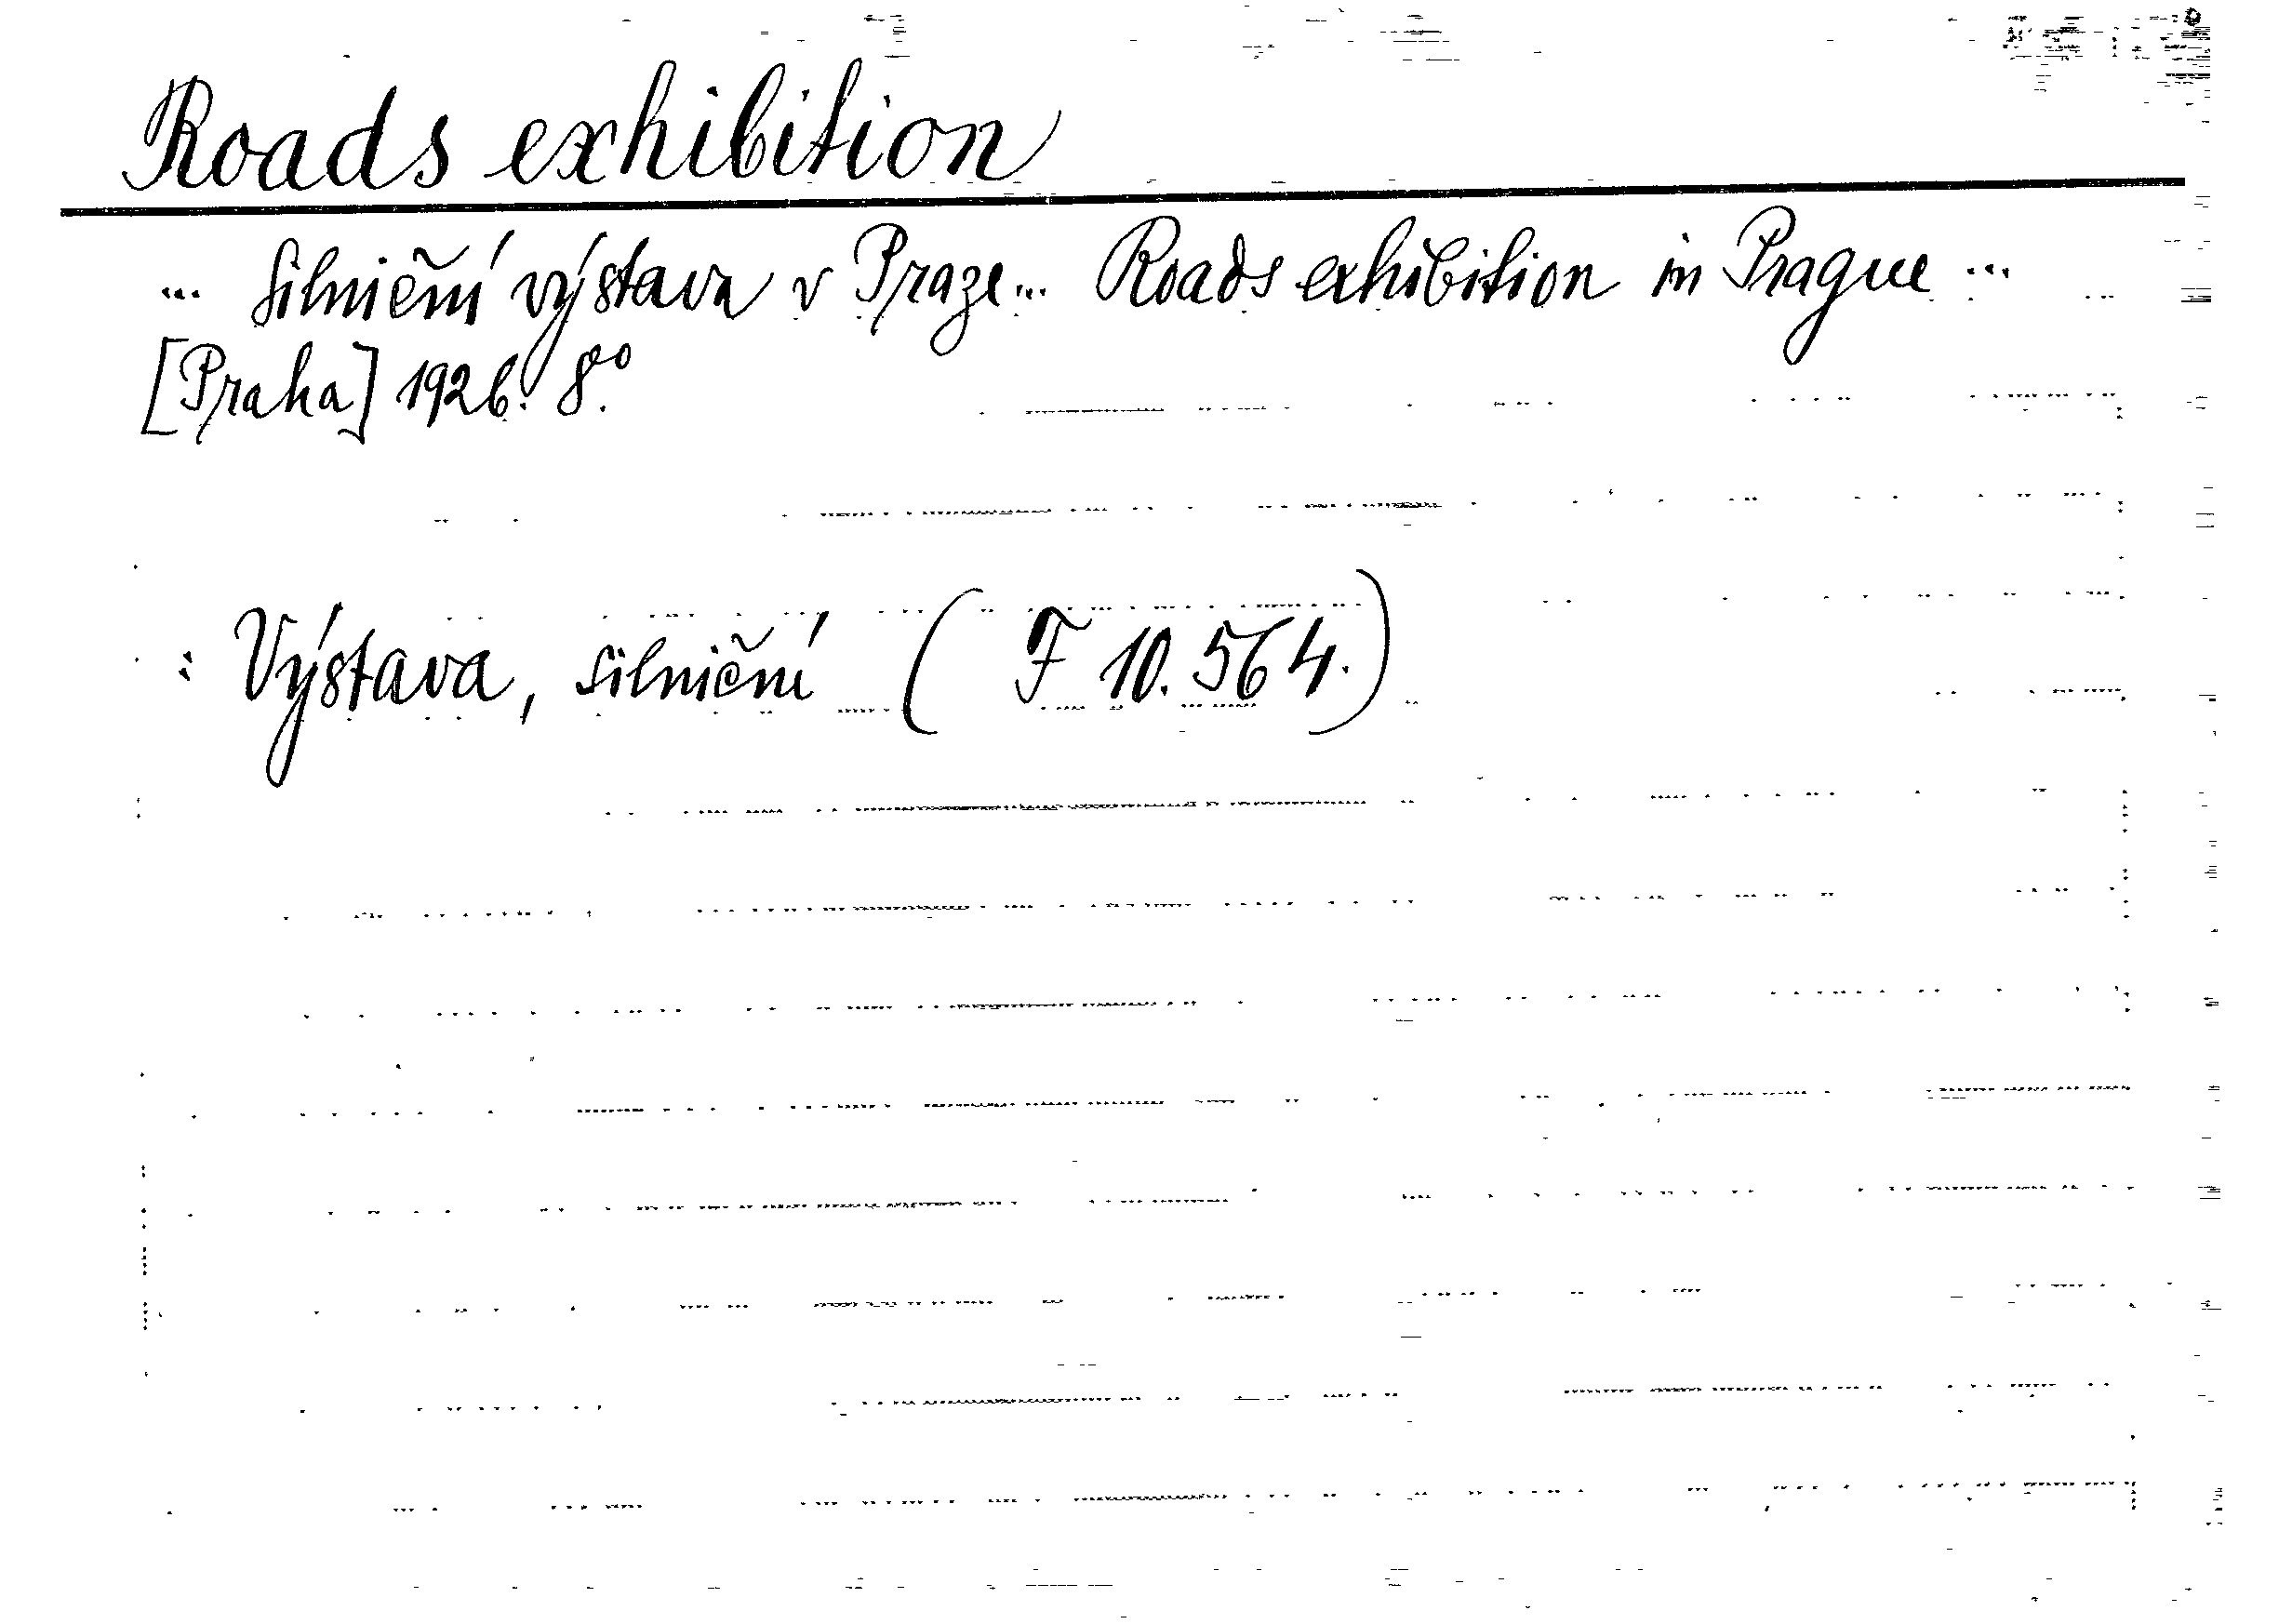 Roads exhibition
... silniční výstava v Praze... Roads exhibition in Prague ...
[Praha] 1926. 8°.
: Výstava, silniční ( F 10.564.)